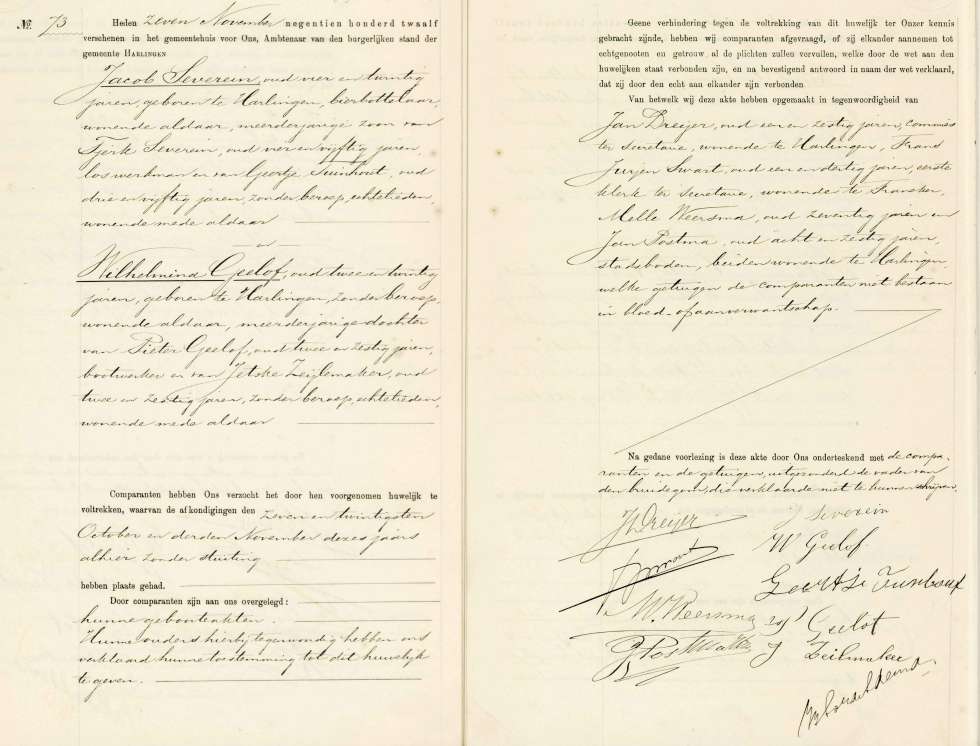 № 73 Heden zeven November negentien honderd twaalf
verschenen in het gemeentehuis voor Ons, Ambtenaar van den burgerlijken stand der
gemeente HARLINGEN
Jacob Severein, oud vier en twintig
jaren, geboren te Harlingen, bierbottelaar,
wonende aldaar, meerderjarige zoon van
Tjerk Severein, oud vier en vijftig jaren,
los werkman en van Geertje Tuinhout, oud
drie en vijftig jaren, zonder beroep, echtelieden,
wonende mede aldaar
en
Wilhelmina Geelof, oud twee en twintig
jaren, geboren te Harlingen, zonder beroep,
wonende aldaar, meerderjarige dochter
van Pieter Geelof, oud twee en zestig jaren,
bootwerker en van Jetske Zeilemaker, oud
twee en zestig jaren, zonder beroep, echtelieden,
wonende mede aldaar
Comparanten hebben Ons verzocht het door hen voorgenomen huwelijk te
voltrekken, waarvan de afkondigingen den zeven en twintigsten
October en derden November dezes jaars
alhier zonder stuiting
hebben plaats gehad.
Door comparanten zijn aan ons overgelegd:
hunne geboorteakten.
Hunne ouders hierbij tegenwoordig hebben ons
verklaard hunne toestemming tot dit huwelijk
te geven.
Geene verhindering tegen de voltrekking van dit huwelijk ter Onzer kennis
gebracht zijnde, hebben wij comparanten afgevraagd, of zij elkander aannemen tot
echtgenooten en getrouw al de plichten zullen vervullen, welke door de wet aan den
huwelijken staat verbonden zijn, en na bevestigend antwoord in naam der wet verklaard,
dat zij door den echt aan elkander zijn verbonden
Van hetwelk wij deze akte hebben opgemaakt in tegenwoordigheid van
Jan Dreijer, oud een en zestig jaren, commies
ter secretarie, wonende te Harlingen, Frans
Jurjen Swart, oud een en dertig jaren, eerste
klerk ter secretarie, wonende te Franeker,
Melle Weersma, oud zeventig jaren en
Jan Postma, oud acht en zestig jaren,
stadsboden, beiden wonende te Harlingen,
welke getuigen de comparanten niet bestaan
in bloed- of aanverwantschap.
Na gedane voorlezing is deze akte door Ons onderteekend met de compa-
ranten en de getuigen, uitgezonderd de vader van
den bruidegom, die verklaarde niet te kunnen schrijven.
Dreijer
J Severein
W Geelof
Swart
Geertje Tuinhout
M. Weersma
P Geelof
J Postma
J Zeilmaker